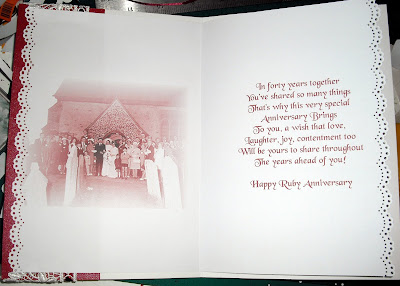 In forty years together
You've shared so many things
That's why this very special
Anniversary Brings
To you, a wish that love,
Laughter, joy, contentment too
Will be yours to share throughout
The years ahead of you!
Happy Ruby Anniversary